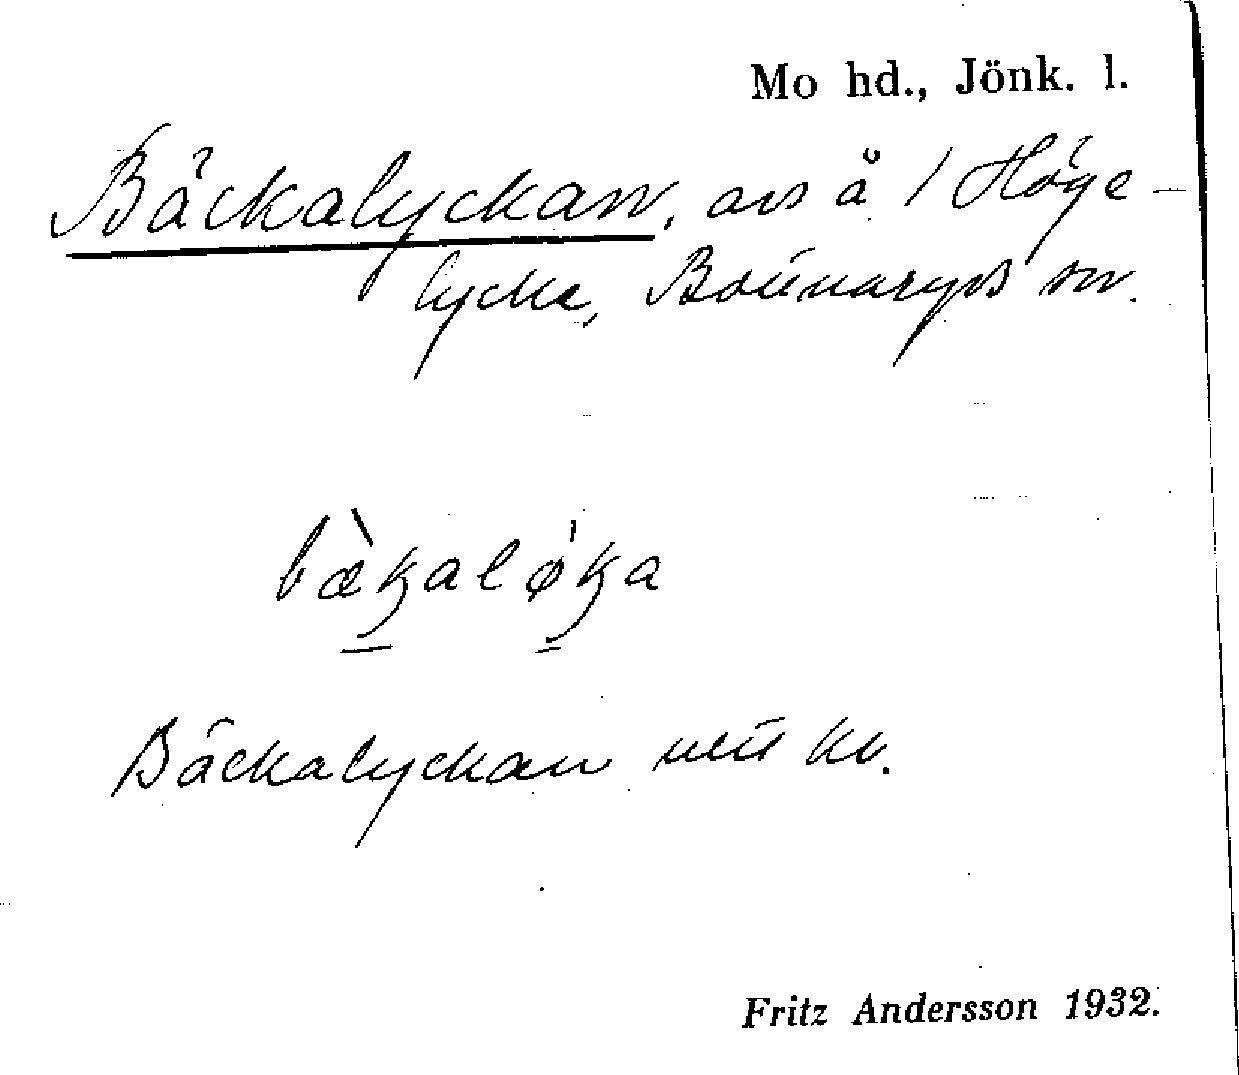 Mo hd., Jönk. l.
Bäckalyckan, avs å 1 Höge-
lycke, Bottnaryds sn.
bæ̀kalø̍ka
Bäckalyckan utü kv.
Fritz Andersson 1932.